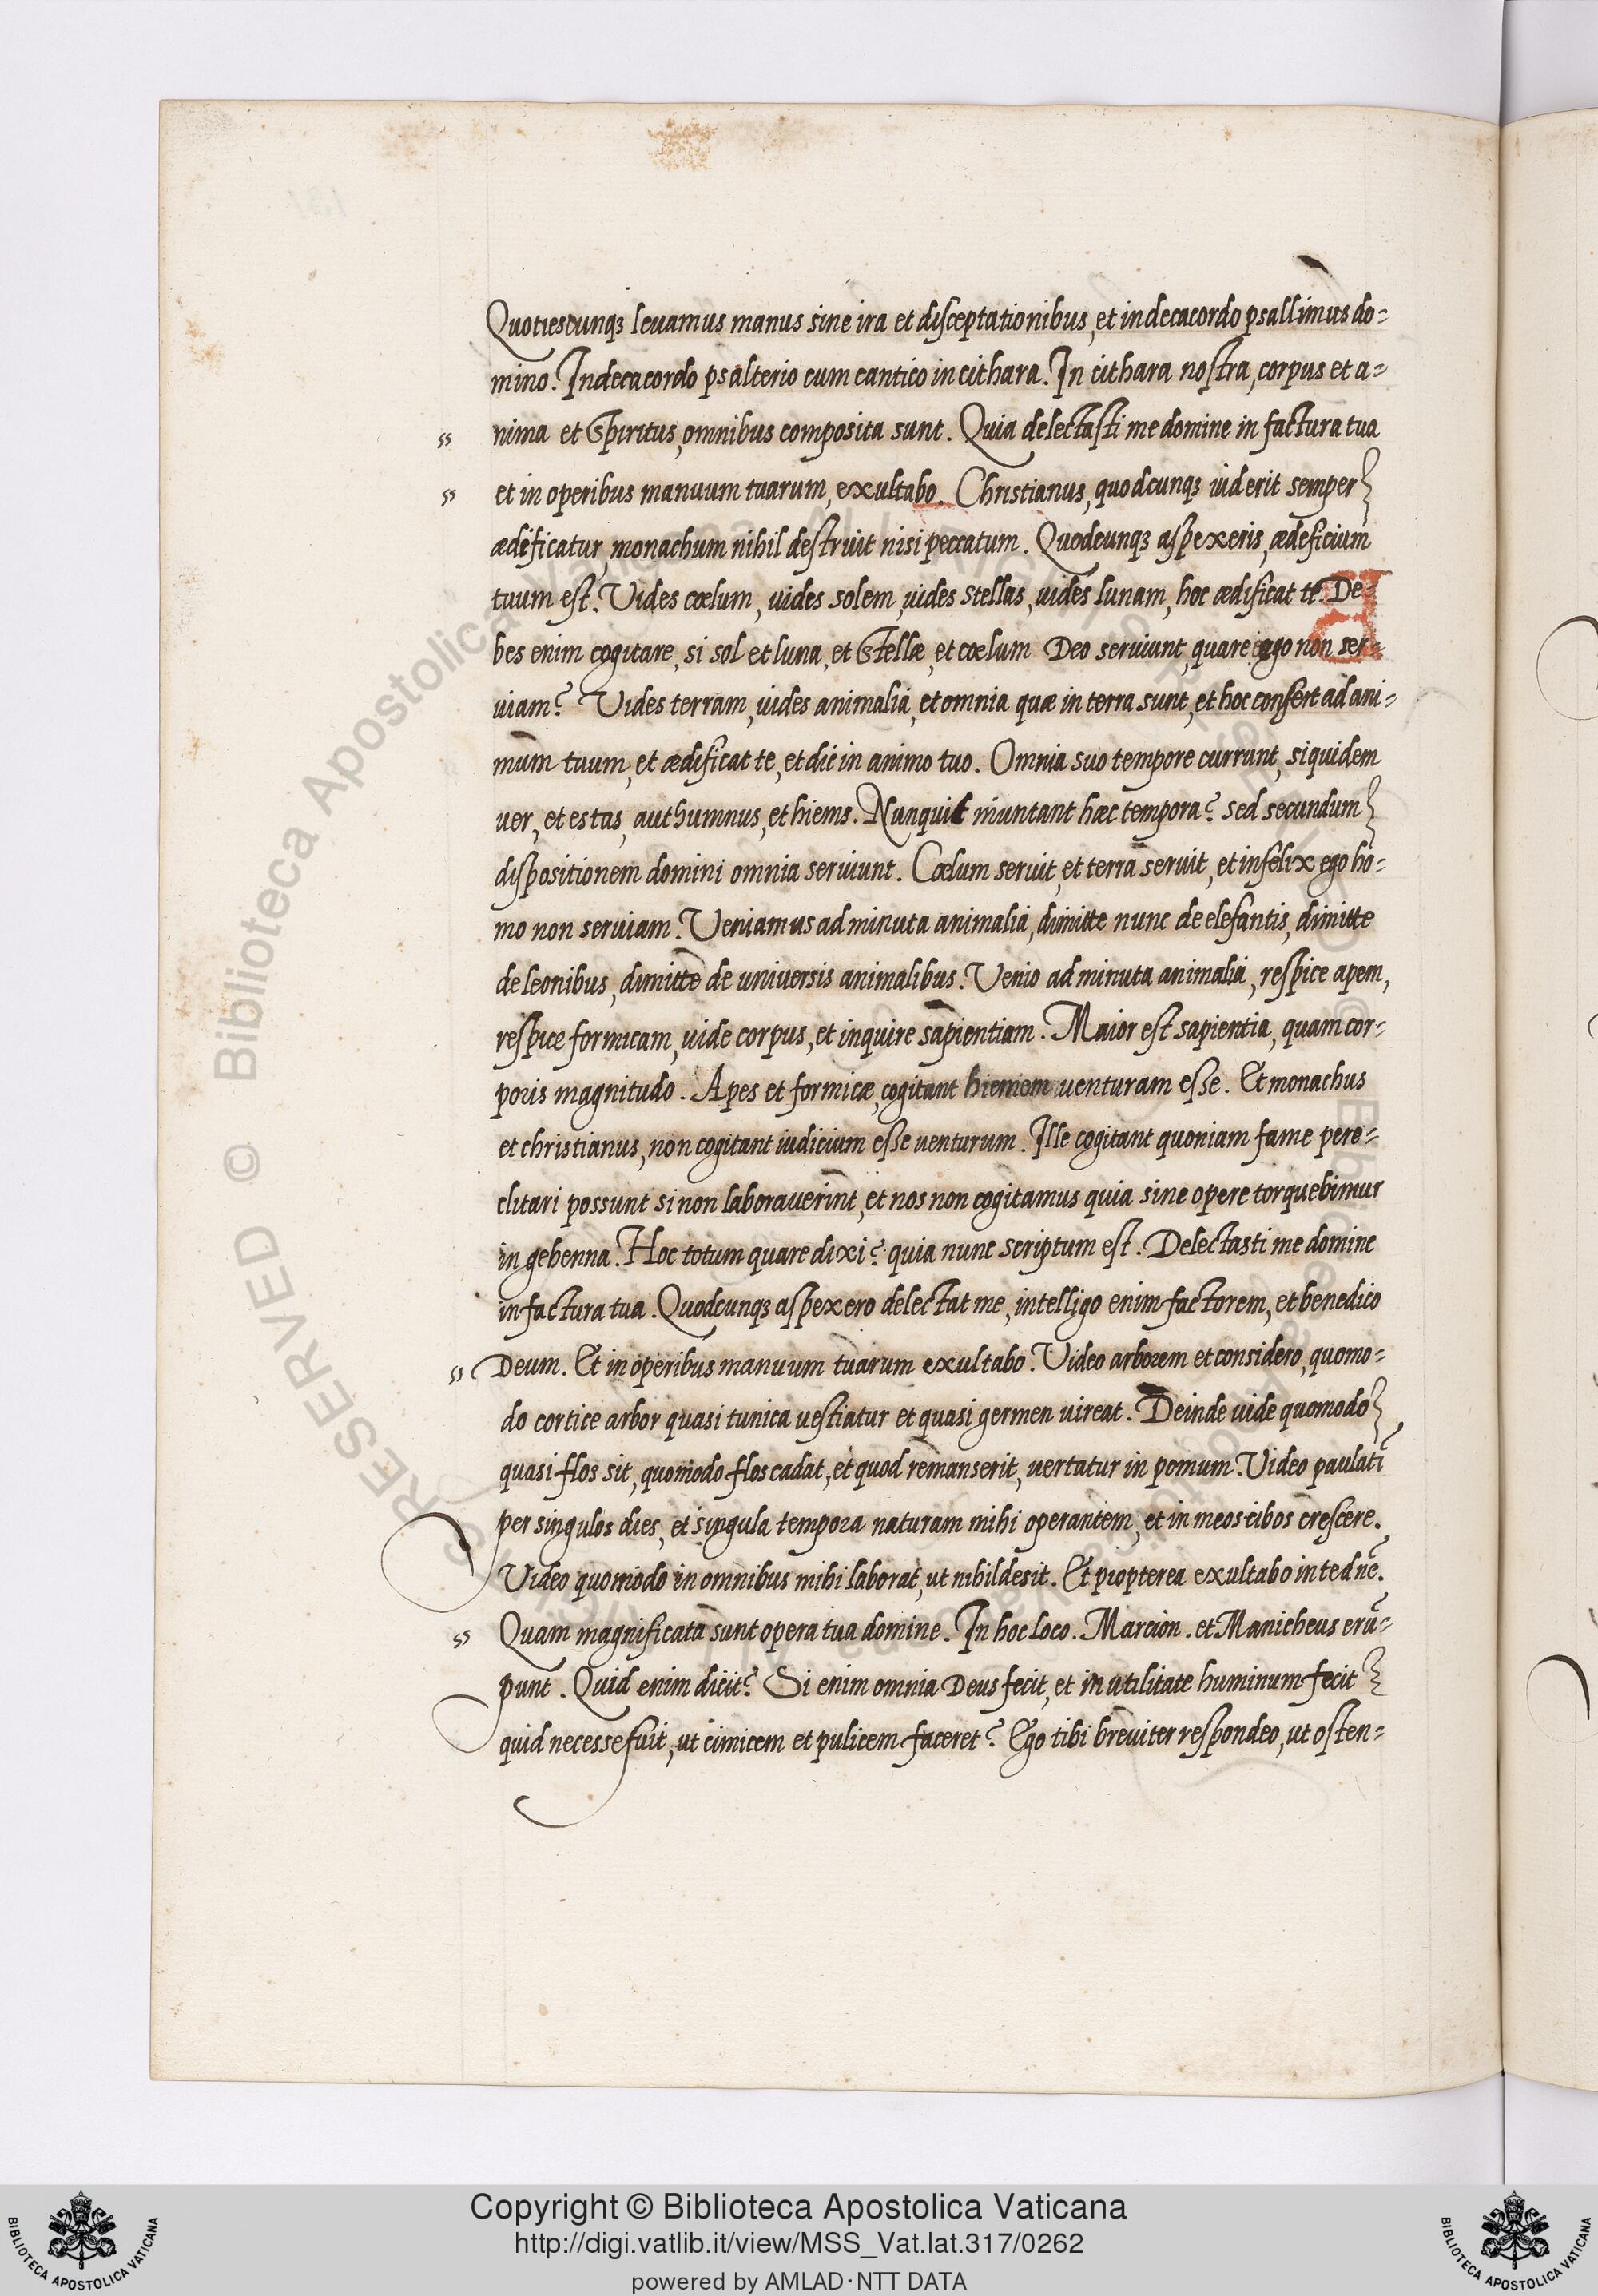 Quotiescunqꝫ levamus manus sine ira et disceptationibus, et in decacordo psallimus do=
mino. In decacordo psalterio cum cantico in cithara. In cithara nostra, corpus et a=
nima et spiritus, omnibus composita sunt. Quia delectasti me domine in factura tua
et in operibus manuum tuarum, exultabo. Christianus, quodcunqꝫ viderit semper
ædificatur, monachum nihil destruit nisi peccatum. Quodcunqꝫ aspexeris, ædeficium
tuum est. Vides cœlum, vides solem, vides stellas, vides lunam, hoc ædificat te. De=
bes enim cogitare, si sol et luna, et stellæ, et cœlum Deo serviunt, quare ego non ser=
viam? Vides terram, vides animalia, et omnia quæ in terra sunt, et hoc confert ad ani=
mum tuum, et ædificat te, et dic in animo tuo. Omnia suo tempore currunt, siquidem
ver, et estas, authumnus, et hiems. Nunquit muntant hæc tempora? sed secundum
dispositionem domini omnia serviunt. Cœlum servit, et terra servit, et infelix ego ho=
mo non serviam. Veniamus ad minuta animalia, dimitte nunc de elefantis, dimitte
de leonibus, dimitte de universis animalibus. Venio ad minuta animalia, respice apem,
respice formicam, vide corpus, et inquire sapientiam. Maior est sapientia, quam cor=
poris magnitudo. Apes et formicæ, cogitant hiemem venturam esse. Et monachus
et christianus, non cogitant iudicium esse venturum. Ille cogitant quoniam fame pere=
clitari possunt si non laboraverint, et nos non cogitamus quia sine opere torquebimur
in gehenna. Hoc totum quare dixi? quia nunc scriptum est. Delectasti me domine
in factura tua. Quodcunqꝫ aspexero delectat me, intelligo enim factorem, et benedico
Deum. Et in operibus manuum tuarum exultabo. Video arborem et considero, quomo=
do cortice arbor quasi tunica vestiatur et quasi germen vireat. Deinde vide quomodo
quasi flos sit, quomodo flos cadat, et quod remanserit, vertatur in pomum. Video paulatĩ
per singulos dies, et singula tempora naturam mihi operantem, et in meos cibos crescere.
Video quomodo in omnibus mihi laborat, ut nihil desit. Et piopterea exultabo in te dñe.
Quam magnificata sunt opera tua domine. In hoc loco. Marcion. et Manicheus erũ=
punt. Quid enim dicit? Si enim omnia Deus fecit, et in utilitate huminum fecit
quid necesse fuit, ut cimicem et pulicem faceret? Ego tibi breviter respondeo, ut osten=
© Biblioteca Apostolica Vaticana
RESERVED
Copyright © Biblioteca Apostolica Vaticana
http://digi.vatlib.it/view/MSS_Vat.lat.317/0262
powered by AMLAD·NTT DATA
BIBLIOTECA APOSTOLICA VATICANA
BIBLIOTECA APOSTOLICA VATICANA